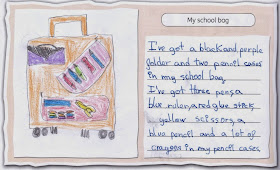 My school bag
I've got a black and purple
folder and two pencil cases
in my school bag
I've got three pens, a
blue ruler, a red glue stick
yellow scissors, a
blue pencil and a lot of
crayons in my pencil cases